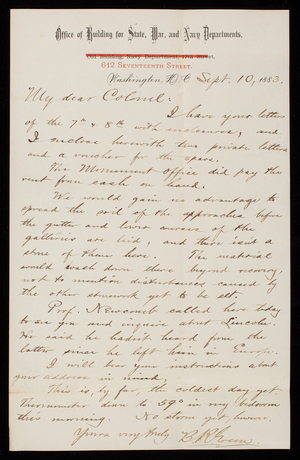 Office of Building for State, War, and Navy Departments.
Old Building, Navy Department, 17th Street.
612 SEVENTEENTH STREET.
Washington, D.C. Sept. 10, 1883.
My dear Colonel:
I have your letters
of the 7th & 8th with inclosures, and
I inclose herewith two private letters
and a voucher for the same.
The Monument office did pay the
rent from cash on hand.
We would gain no advantage to
spread the soil of the approaches before
the gutter and lower courses of the
galleries are laid, and there isn't a
stone of them here. The material
would wash down there beyond recovery,
not to mention disturbances caused by
the other stonework yet to be set.
Prof. Newcomb called here today
to see you and inquire about Lincoln.
He said he hadn't heard from the
latter since he left him in Europe.
I will bear your instructions about
your address in mind.
This is, by far, the coldest day yet.
Thermometer down to 59° in my bedroom
this morning. No storm yet, however.
Yours very truly B. R. Green